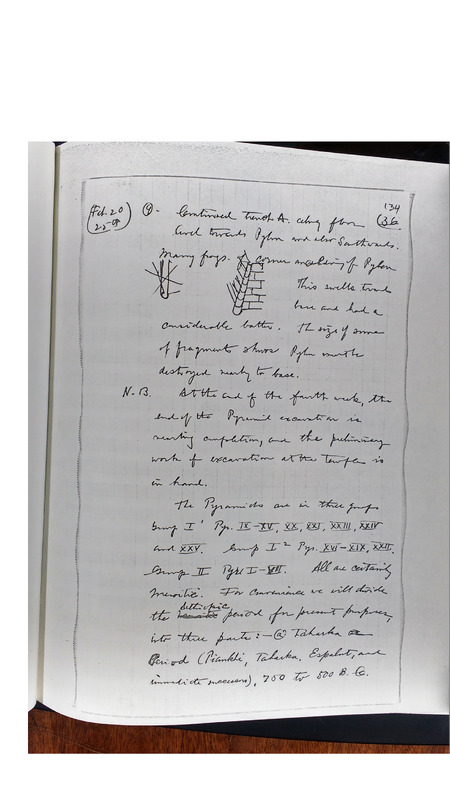 134
(Feb. 20
(36
Continued trench A. along floor
level towards Pylon and also Southwards.
Many frags. of corner moulding of Pylon
This swells toward
base and had a
considerable batter. The size of some
of fragments shows Pylon must be
destroyed nearly to base.
N.B. At the end of the fourth week, the
end of the Pyramid excavation is
nearing completion, and the preliminary
work of excavation at the temple is
in hand.
The Pyramids are in three groups
Group I' Pyr. IX-XV, XX, XXI, XXIII, XXIV
and XXV. Group I² Pyr. XVI-XIX, XXII.
Group II Pyr. I-VIII. All are certainly
Meroitic. For convenience we will divide
the Ethiopic period for present purposes,
into three parts:- (a) Taharka
Period (Piankhi, Taharka, Espalut, and
immediate successors), 750 to 500 B.C.